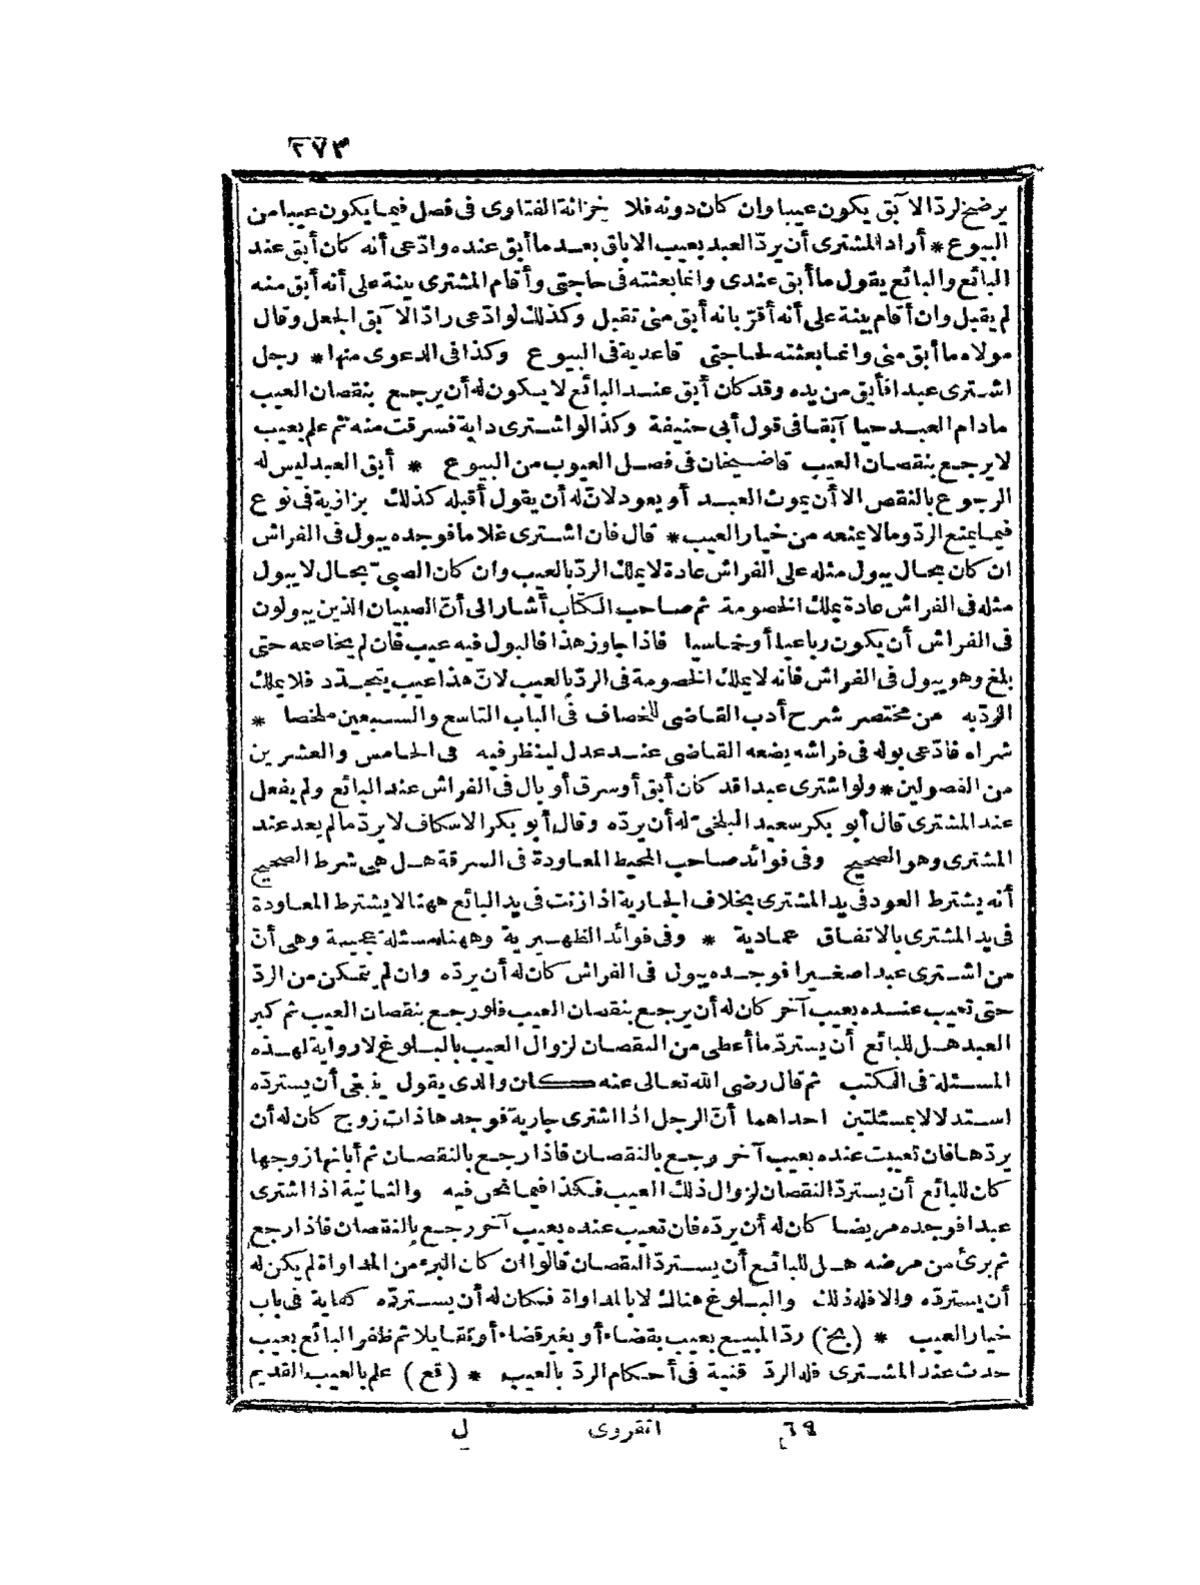 ٢٧٣
يرضخ لردّ الآبق يكون عيبا وان كان دونه فلا خزانة الفتاوى فى فصل فيما يكون عيبا من
البيوع * أراد المشترى أن يردّ العبد بعيب الاباق بعد ما أبق عنده وادّعى أنه كان أبق عند
البائع والبائع يقول ما أبق عندى وانما بعثته فى حاجتى وأقام المشترى بينة على أنه أبق منه
لم يقبل وان أقام بينة على أنه أقرّ بانه أبق منى تقبل وكذلك لو ادّعى رادّ الآبق الجعل وقال
مولاه ما أبق منى وانما بعثته لحاجتى قاعدية فى البيوع وكذا فى الدعوى منها * رجل
اشترى عبدا فأبق من يده وقد كان أبق عند البائع لا يكون له أن يرجع بنقصان العيب
مادام العبد حيا آبقا فى قول أبى حنيفة وكذا لو اشترى دابة فسرقت منه ثم علم بعيب
لا يرجع بنقصان العيب قاضيخان فى فصل العيوب من البيوع * أبق العبد ليس له
الرجوع بالنقص الا أن يموت العبد أو يعود لانّ له أن يقول أقبله كذلك بزازية فى نوع
فيما يمنع الردّ وما لا يمنعه من خيار العيب * قال فان اشترى غلاما فوجده يبول فى الفراش
ان كان بحال يبول مثله على الفراش عادة لا يملك الردّ بالعيب وان كان الصبىّ بحال لا يبول
مثله فى الفراش عادة يملك الخصومة ثم صاحب الكتاب أشار الى أنّ الصبيان الذين يبولون
فى الفراش أن يكون رباعيا أو خماسيا فاذا جاوز هذا فالبول فيه عيب فان لم يخاصمه حتى
بلغ وهو يبول فى الفراش فانه لا يملك الخصومة فى الردّ بالعيب لانّ هذا عيب يتجدّد فلا يملك
الردّ به من مختصر شرح أدب القاضى للخصاف فى الباب التاسع والسبعين ملخصا *
شراه فادّعى بوله فى فراشه يضعه القاضى عند عدل لينظر فيه فى الخامس والعشرين
من الفصولين * ولو اشترى عبدا قد كان أبق أو سرق أو بال فى الفراش عند البائع ولم يفعل
عند المشترى قال أبو بكر سعيد البلخىّ له أن يردّه وقال أبو بكر الاسكاف لا يردّ مالم يعد عند
المشترى وهو الصحيح وفى فوائد صاحب المحيط المعاودة فى السرقة هل هى شرط الصحيح
أنه يشترط العود فى يد المشترى بخلاف الجارية اذا زنت فى يد البائع ههنا لا يشترط المعاودة
فى يد المشترى بالاتفاق عمادية * وفى فوائد الظهيرية وههنا مسئلة عجيبة وهى أنّ
من اشترى عبدا صغيرا فوجده يبول فى الفراش كان له أن يردّه وان لم يتمكن من الردّ
حتى تعيب عنده بعيب آخر كان له أن يرجع بنقصان العيب فلو رجع بنقصان العيب ثم كبر
العبد هل للبائع أن يستردّ ما أعطى من النقصان لزوال العيب بالبلوغ لا رواية لهذه
المسئلة فى الكتب ثم قال رضى الله تعالى عنه كان والدى يقول ينبغى أن يستردّه
استدلالا بمسئلتين احداهما أنّ الرجل اذا اشترى جارية فوجدها ذات زوج كان له أن
يردّها فان تعيبت عنده بعيب آخر رجع بالنقصان فاذا رجع بالنقصان ثم أبانها زوجها
كان للبائع أن يستردّ النقصان لزوال ذلك العيب فكذا فيما نحن فيه والثانية اذا اشترى
عبدا فوجده مريضا كان له أن يردّه فان تعيب عنده بعيب آخر رجع بالنقصان فاذا رجع
ثم برئ من مرضه هل للبائع أن يستردّ النقصان قالوا ان كان البرء من المداواة لم يكن له
أن يستردّه والا فله ذلك والبلوغ هناك لا بالمداواة فكان له أن يستردّه كفاية فى باب
خيار العيب * (بخ) ردّ المبيع بعيب بقضاء أو بغير قضاء أو تقايلا ثم ظفر البائع بعيب
حدث عند المشترى فله الردّ قنية فى أحكام الردّ بالعيب * (قع) علم بالعيب القديم
٦٩ انقروى ل